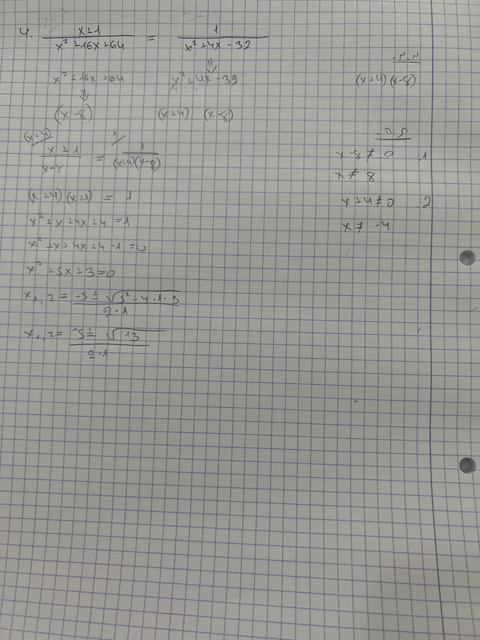 4. (x+1)/(x²+16x+64) = 1/(x²+4x-32)
x²+16x+64    x²+4x-32
⇓
(x-8)    (x+4) (x-8)
(x+4)/ (x+1)/(x-8) = 1/ 1/((x+4)(x-8))
(x+4)(x+1) = 1
x²+x+4x+4=1
x²+x+4x+4-1=0
x²+5x+3=0
x₁,2= (-5±√(5²-4·1·3))/(2·1)
x₁,2= (-5±√13)/(2·1)
(x+4)(x-8)
x-8≠0 1
x≠8
x+4≠0 2
x≠-4